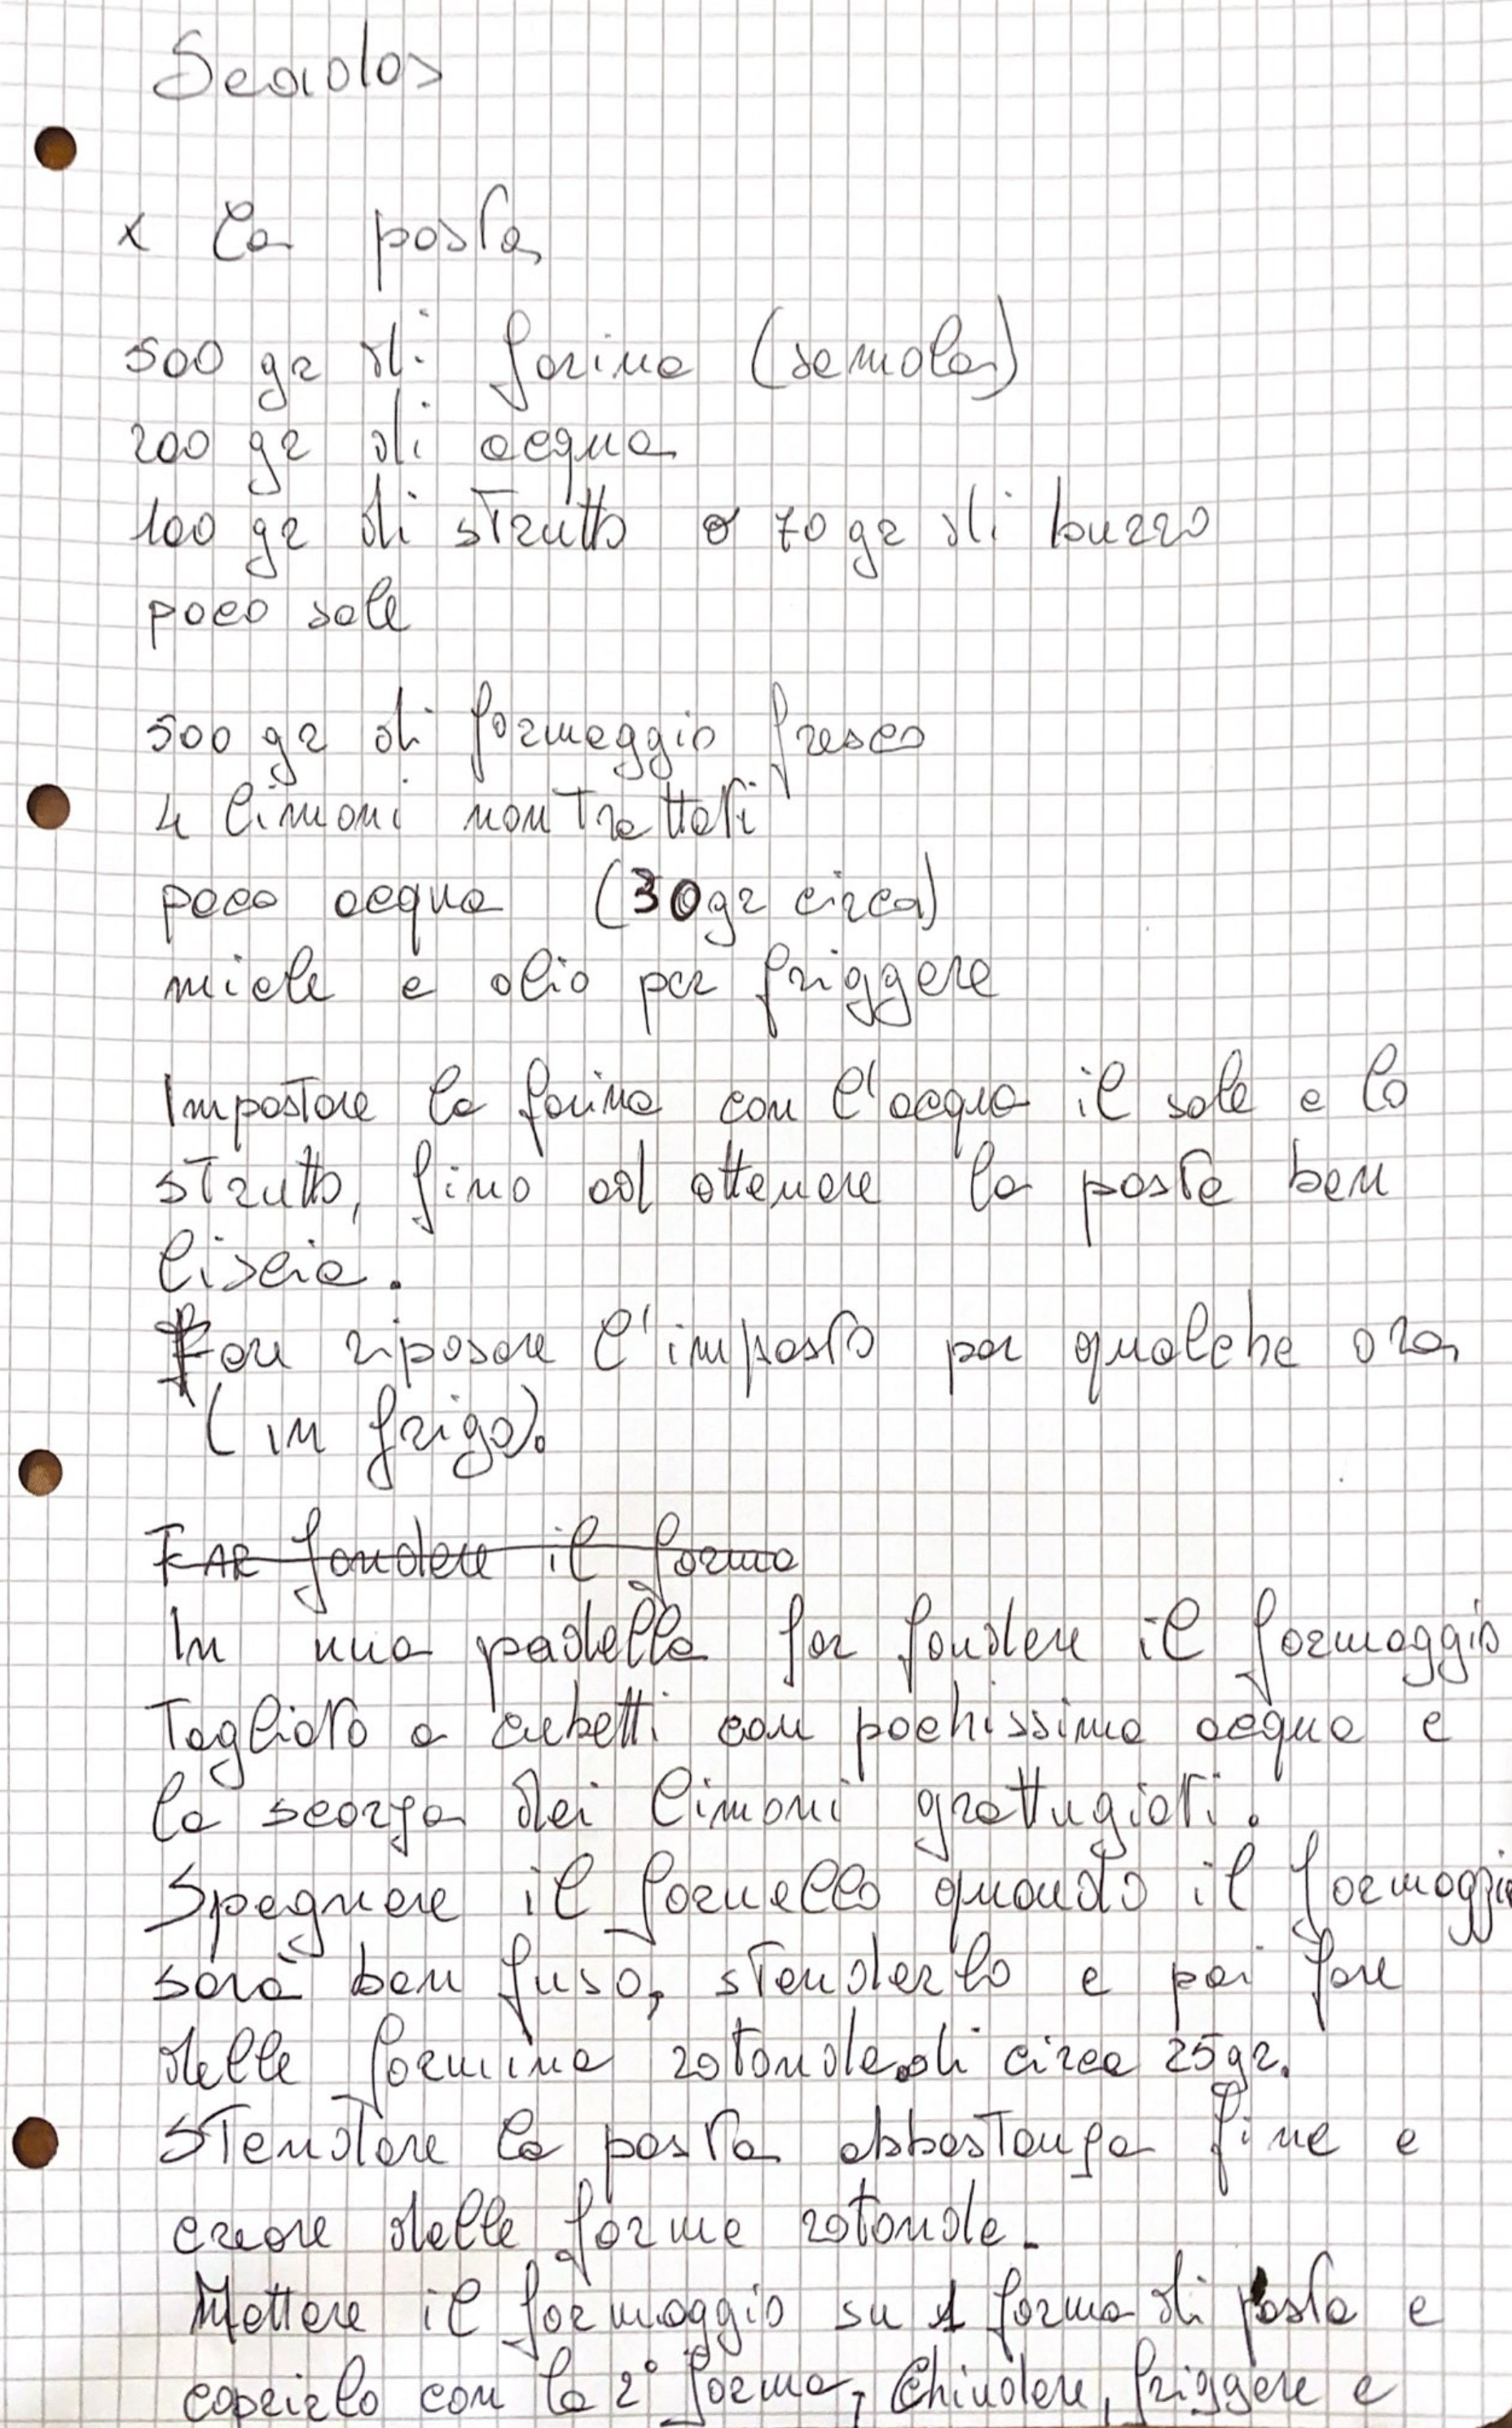 Seadas
x la pasta
500 gr di farina (semola)
200 gr di acqua
100 gr di strutto o 70 gr di burro
poco sale
500 gr di formaggio fresco
4 limoni non trattati
poco acqua (30gr circa)
miele e olio per friggere
Impastare la farina con l'acqua il sale e lo
strutto, fino ad ottenere la pasta ben
liscia.
Fare riposare l'impasto per qualche ora
(in frigo).
FAR fondere il forma
In una padella far fondere il formaggio
Tagliato a cubetti con pochissima acqua e
la scorza dei limoni grattugiati.
Spegnere il fornello quando il formaggio
sarà ben fuso, stenderlo e poi fare
delle formine rotonde di circa 25gr.
Stendere la pasta abbastanza fine e
creare delle forme rotonde.
Mettere il formaggio su 1 forma di pasta e
coprirlo con la 2° forma, Chiudere, friggere e